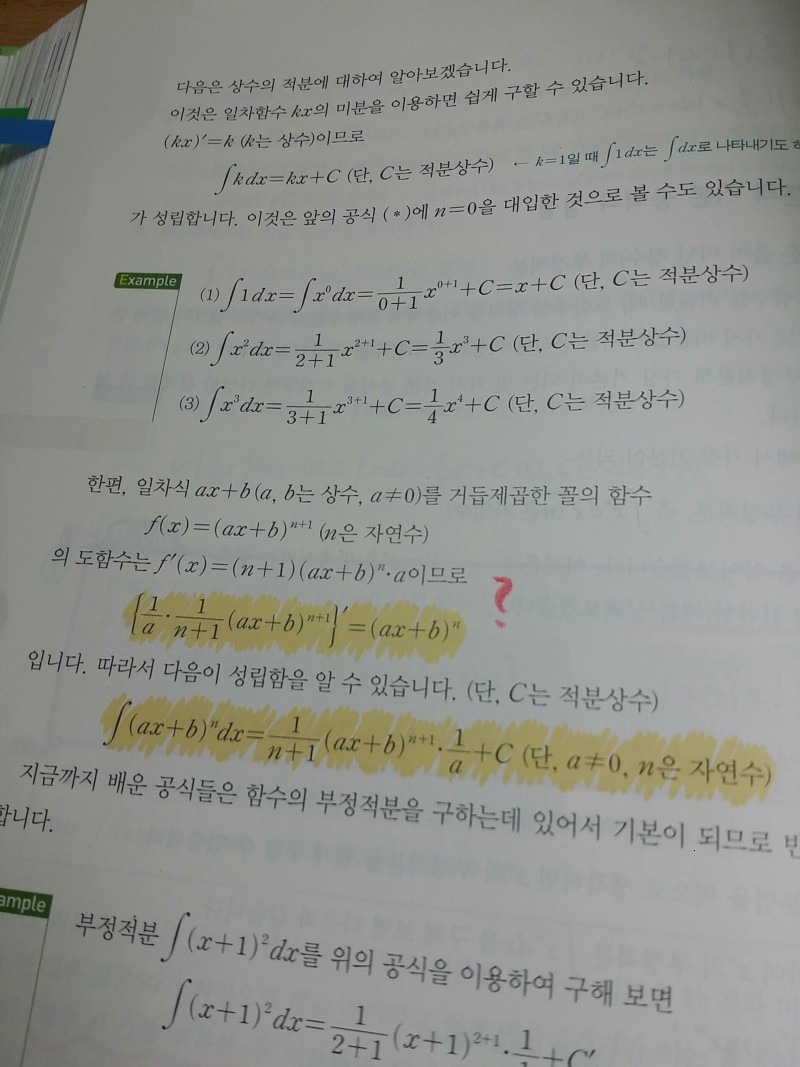 다음은 상수의 적분에 대하여 알아보겠습니다.
이것은 일차함수 kx의 미분을 이용하면 쉽게 구할 수 있습니다.
(kx)′=k (k는 상수)이므로
∫kdx=kx+C (단, C는 적분상수) ← k=1일 때 ∫1dx는 ∫dx로 나타내기도
가 성립합니다. 이것은 앞의 공식 (*)에 n=0을 대입한 것으로 볼 수도 있습니다.
Example
(1) ∫1dx=∫x⁰dx=1/(0+1) x⁰⁺¹+C=x+C (단, C는 적분상수)
(2) ∫x²dx=1/(2+1) x²⁺¹+C=1/3 x³+C (단, C는 적분상수)
(3) ∫x³dx=1/(3+1) x³⁺¹+C=1/4 x⁴+C (단, C는 적분상수)
한편, 일차식 ax+b(a, b는 상수, a≠0)를 거듭제곱한 꼴의 함수
f(x)=(ax+b)ⁿ⁺¹ (n은 자연수)
의 도함수는 f′(x)=(n+1)(ax+b)ⁿ·a이므로
{1/a · 1/(n+1) (ax+b)ⁿ⁺¹}′=(ax+b)ⁿ ?
입니다. 따라서 다음이 성립함을 알 수 있습니다. (단, C는 적분상수)
∫(ax+b)ⁿdx=1/(n+1) (ax+b)ⁿ⁺¹·1/a+C (단, a≠0, n은 자연수)
지금까지 배운 공식들은 함수의 부정적분을 구하는데 있어서 기본이 되므로
합니다.
ample
부정적분 ∫(x+1)²dx를 위의 공식을 이용하여 구해 보면
∫(x+1)²dx=1/(2+1) (x+1)²⁺¹·1/1+C